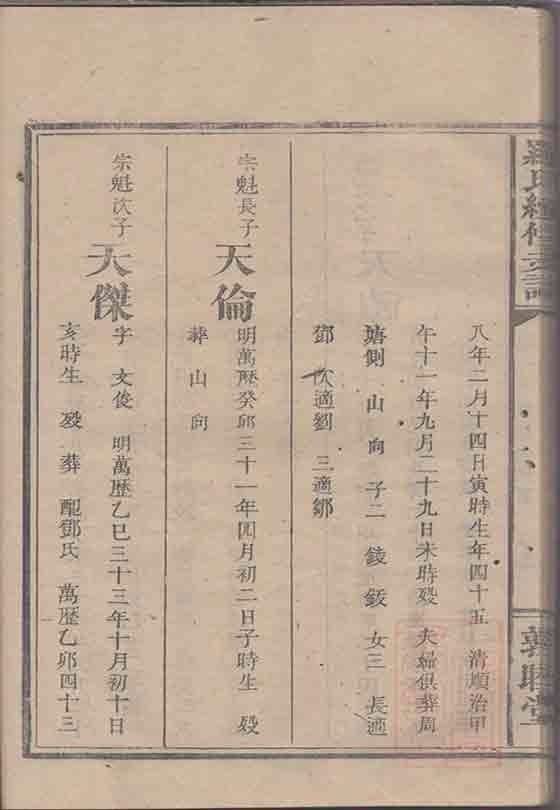 羅氏續修支譜
六
敦睦堂
八年二月十四日寅時生年四十五 清順治甲
午十一年九月二十九日未時殁 夫婦俱葬周
塘側 山 向 子二 錂 錽 女三 長適
鄧 次適劉 三適鄒
宗魁長子
天倫
明萬厯癸卯三十一年四月初二日子時生 殁
葬 山 向
宗魁次子
天傑
字 文俊 明萬歷乙巳三十三年十月初十日
亥時生 殁 葬 配鄧氏 萬歷乙卯四十三